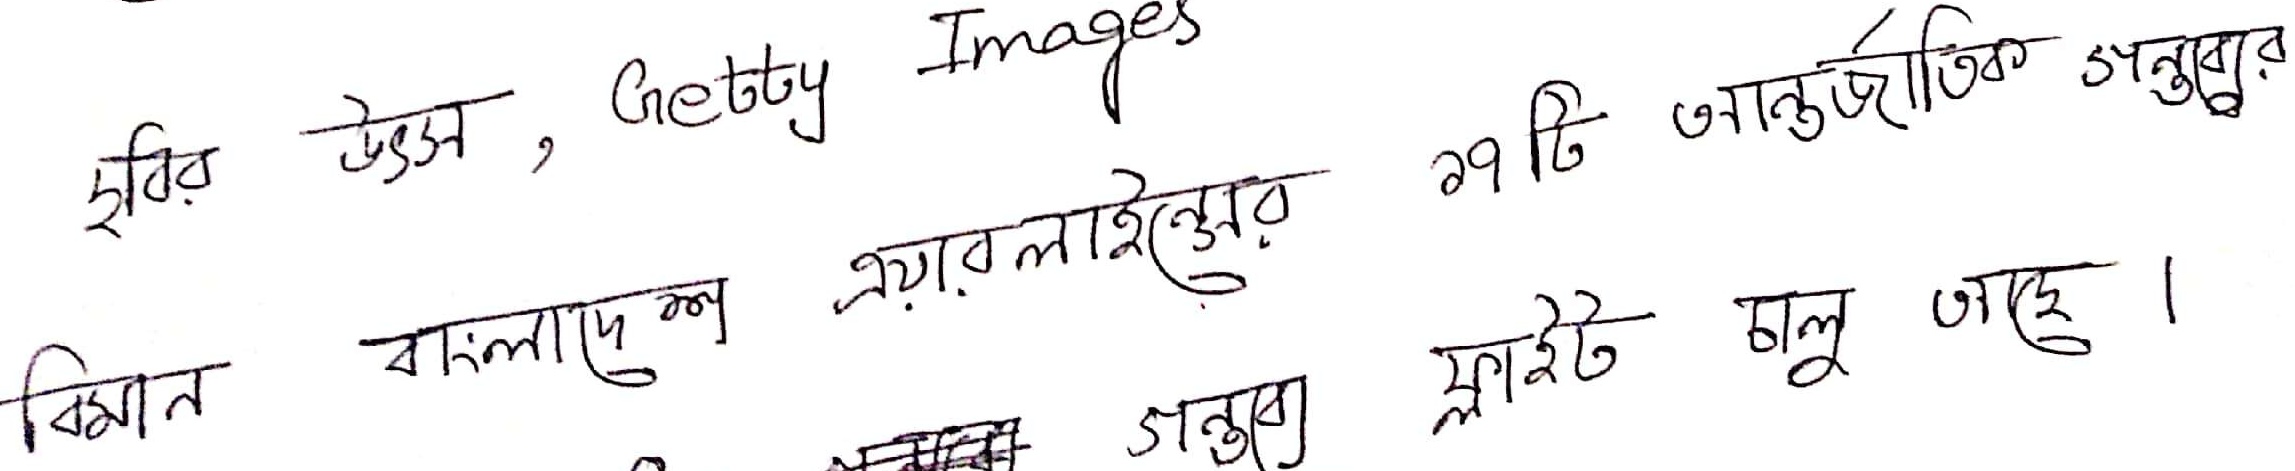 ছবির উৎস, Getty Images
বিমান বাংলাদেশ এয়ারলাইন্সের ১৭টি আন্তর্জাতিক গন্তব্যের
গন্তব্যে ফ্লাইট চালু আছে।